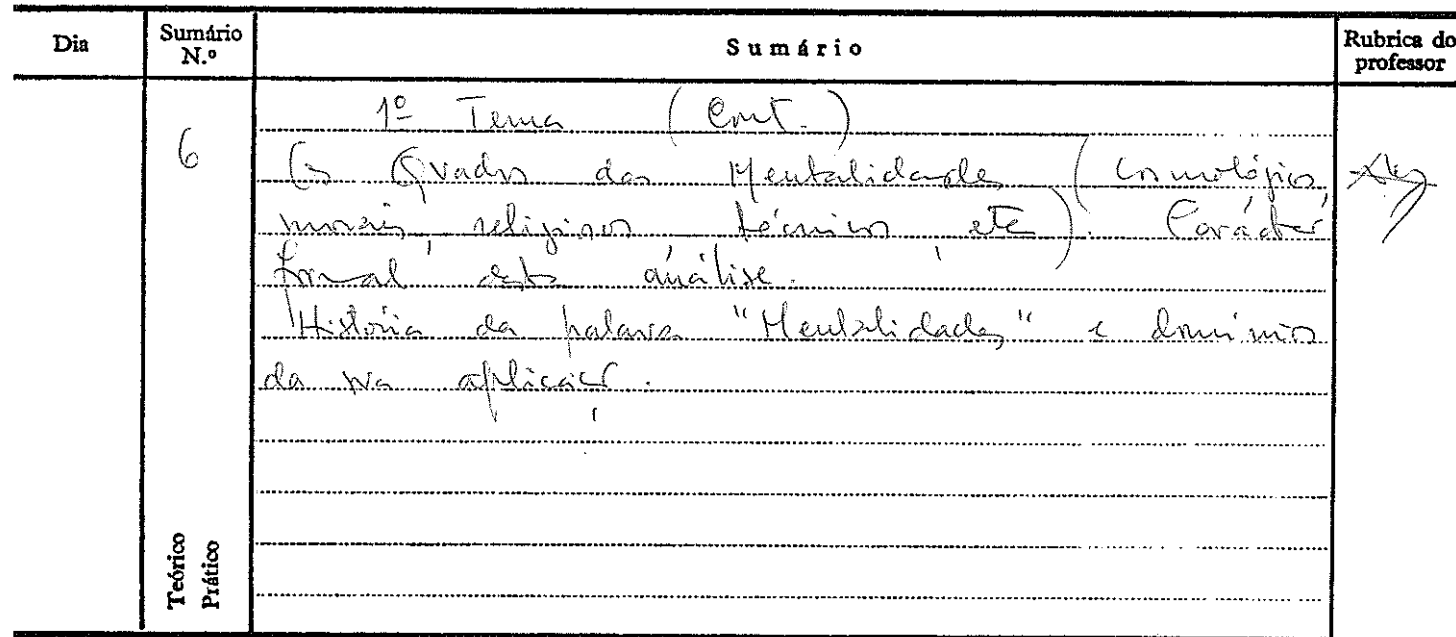 Dia
Sumário N.º
Sumário
Rubrica do professor
1º Tema (Cont.)
6
Os Quadros das Mentalidades (cosmológicos,
morais, religiosos, técnicos, etc). Carácter
formal desta análise.
História da palavra "Mentalidades" e domínios
da sua aplicação.
Teórico
Prático